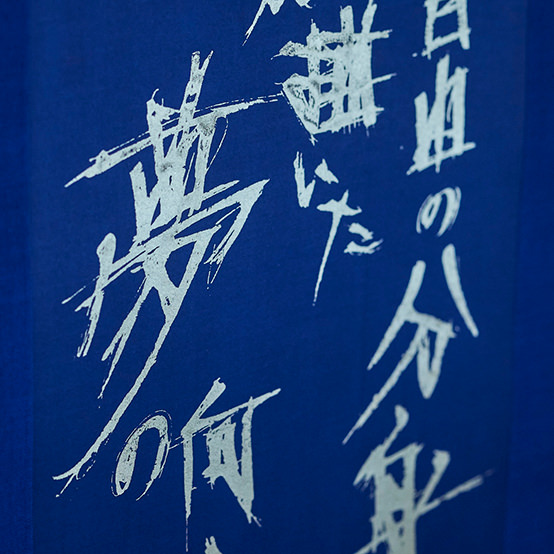 自由の分身
描いた
夢の何